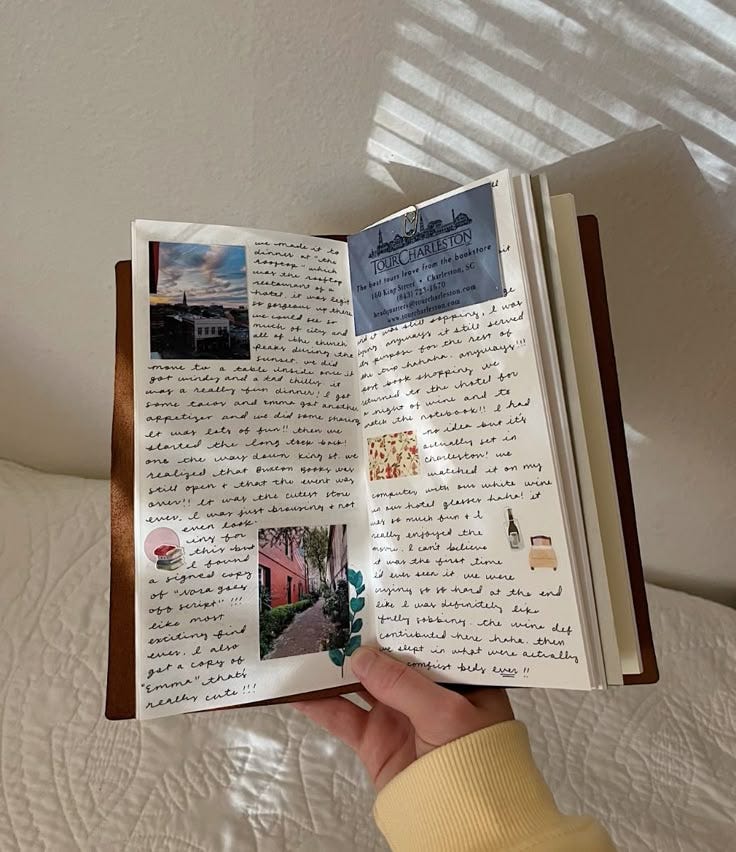 we made it to
dinner at "the
rooftop" which
was the rooftop
restaurant of a
hotel. it was legit
so gorgeous up there
we could see so
much of city and
all of the church
peaks during the
sunset. we did
move to a table inside once it
got windy and a tad chilly. it
was a really fun dinner! I got
some tacos and emma got another
appetizer and we did some sharing
it was lots of fun!! then we
started the long trek back!
one the way down king st. we
realized that Buxton Books was
still open + that the event was
over!! it was the cutest store
ever. I was just browsing + not
even look-
ing for
this but
I found
a signed copy
of "nora goes
off script"!!!
like most
exciting find
ever. I also
got a copy of
"Emma" that's
really cute!!!
TOURCHARLESTON
The best tours leave from the bookstore
160 King Street • Charleston, SC
(843) 723-1670
headquarters@tourcharleston.com
www.tourcharleston.com
it
ge
it was still sopping. I was
anyways it still served
purpose for the rest of
trip hahaha. anyways!!!
book shopping we
returned to the hotel for
a night of wine and to
watch the notebook!! I had
no idea but it's
actually set in
charleston! we
watched it on my
computer with our white wine
in our hotel glasses haha! it
was so much fun + I
really enjoyed the
movie. I can't believe
it was the first time
I'd ever seen it. we were
crying so so hard at the end
like I was definitely like
fully sobbing. the wine def
contributed here haha. then
we slept in what were actually
comfiest beds ever!!